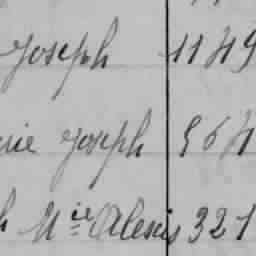 Joseph 1149
rie Joseph 564
h Mie Alexis 321